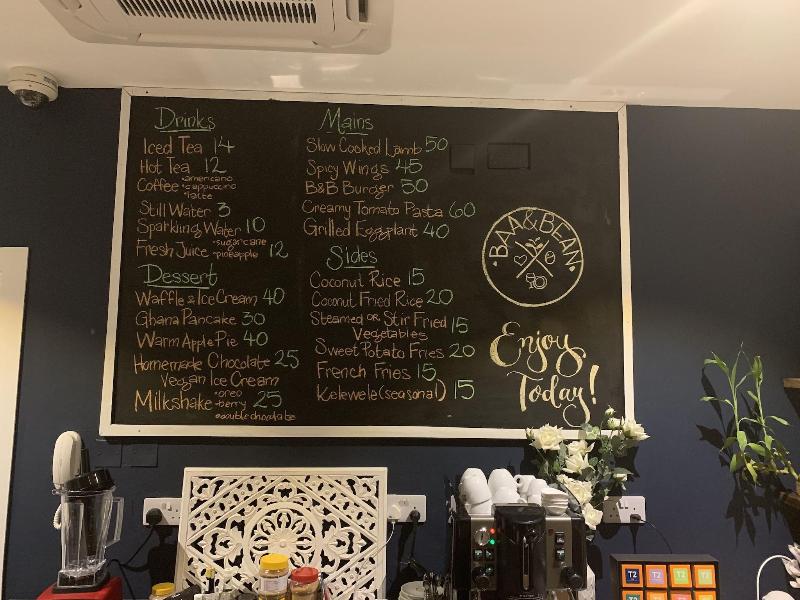 Drinks
Iced Tea 14
Hot Tea 12
Coffee •americano
•cappuccino
•latte
Still Water 3
Sparkling Water 10
Fresh Juice •sugarcane
•pineapple 12
Dessert
Waffle & Ice Cream 40
Ghana Pancake 30
Warm Apple Pie 40
Homemade Chocolate 25
Vegan Ice Cream
Milkshake •oreo
•berry 25
•double chocolate
Mains
Slow Cooked Lamb 50
Spicy Wings 45
B&B Burger 50
Creamy Tomato Pasta 60
Grilled Eggplant 40
Sides
Coconut Rice 15
Coconut Fried Rice 20
Steamed or Stir Fried 15
Vegetables
Sweet Potato Fries 20
French Fries 15
Kelewele (seasonal) 15
BAA&BEAN
Enjoy
Today!
T2 T2 T2 T2